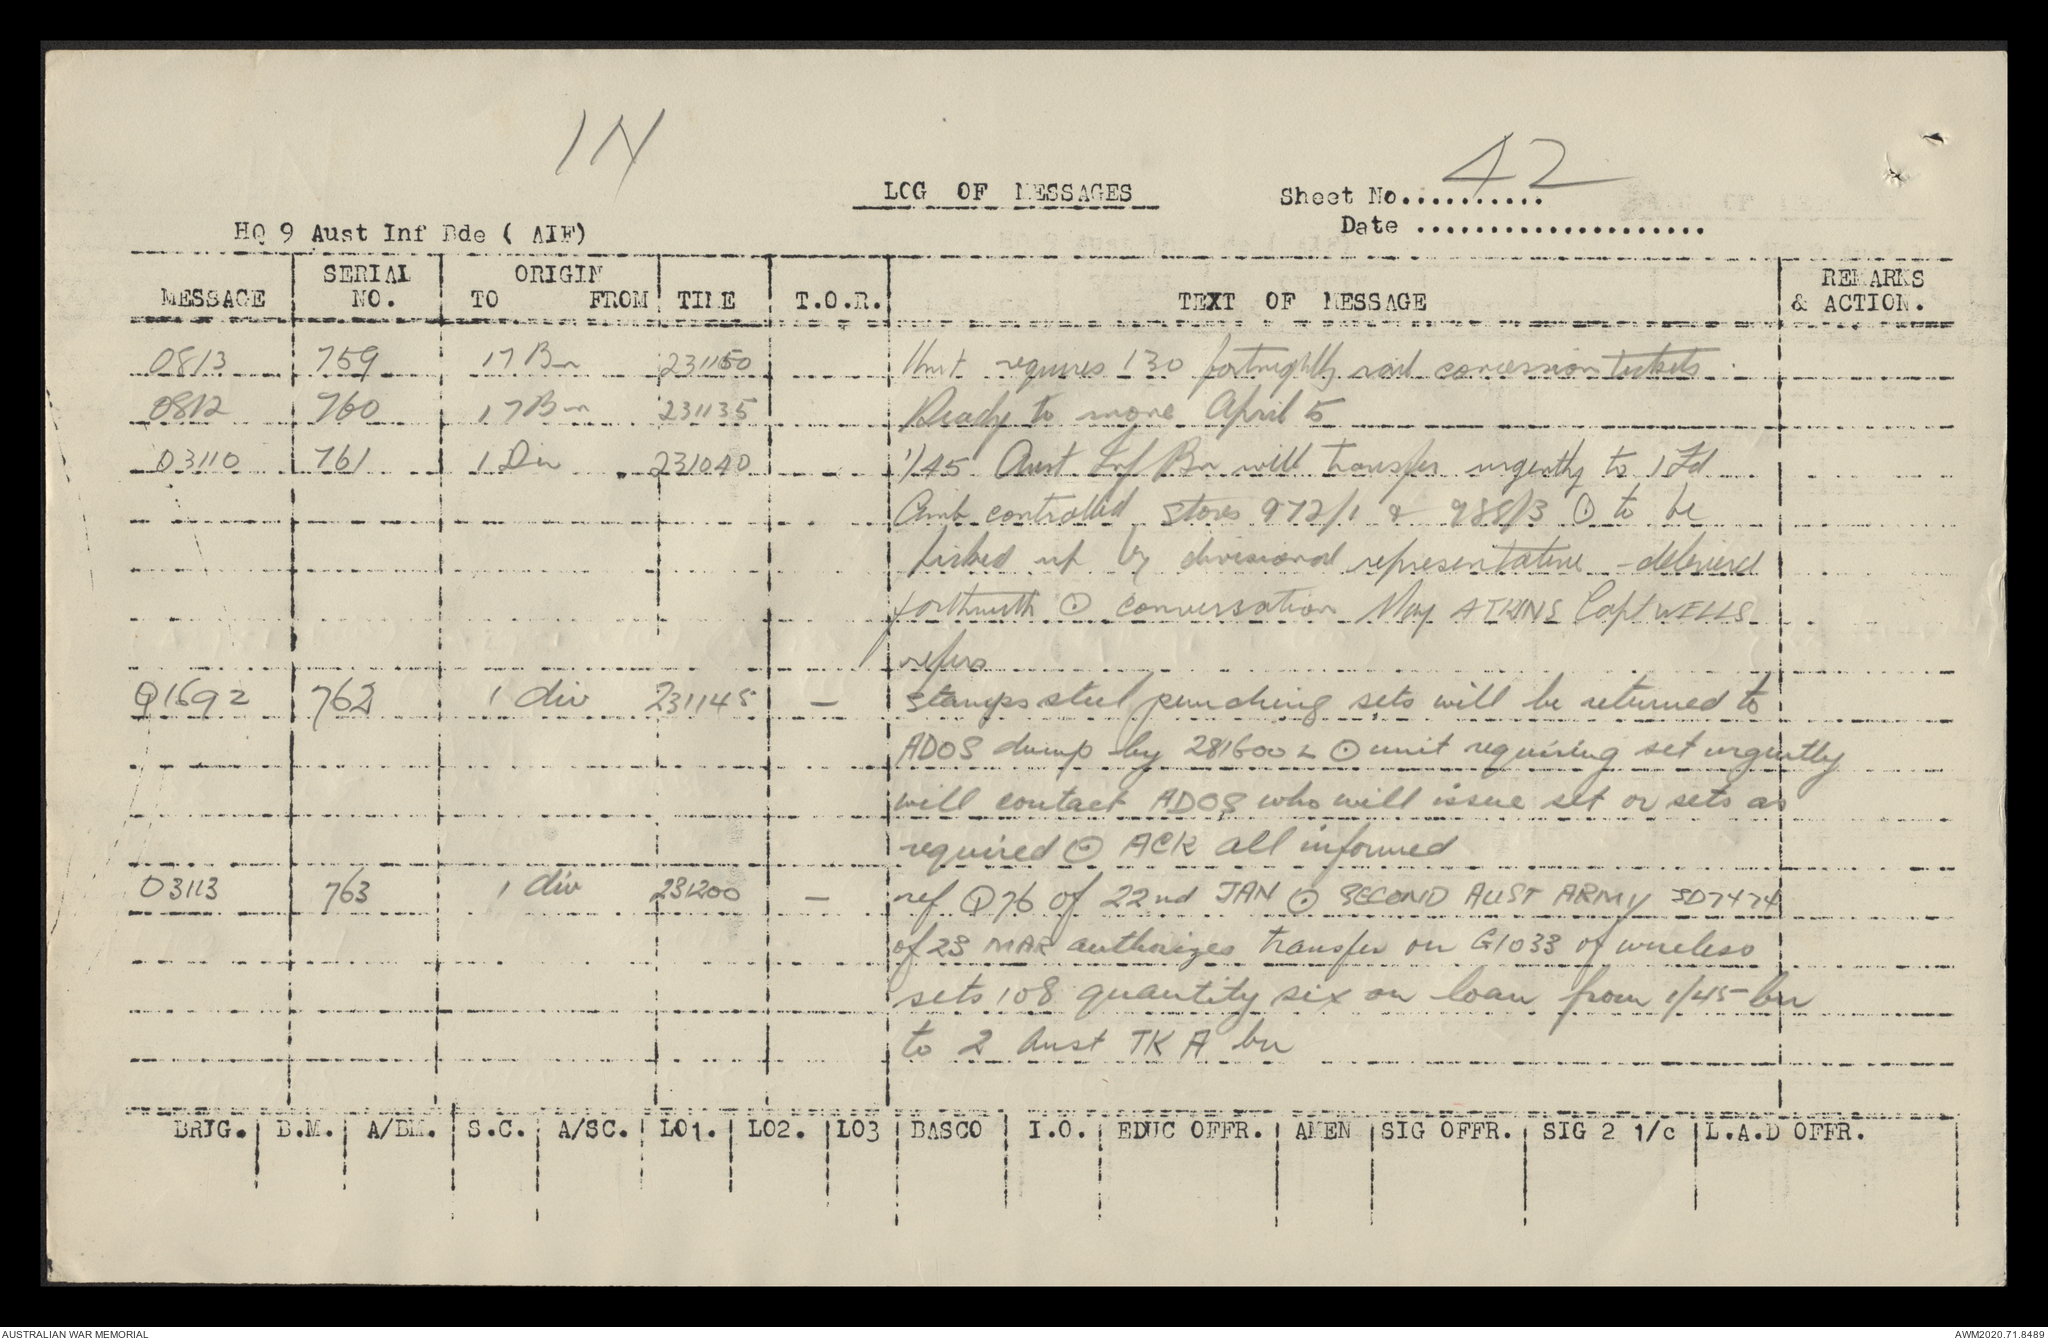 IN
42
LOG OF MESSAGES
Sheet No..........
Date .....................
HQ 9 Aust Inf Bde ( AIF)
MESSAGE SERIAL NO. ORIGIN TO FROM TIME T.O.R. TEXT OF MESSAGE REMARKS & ACTION.
0813 759 17 Bn 231150 Unit requires 130 fortnightly rail concession tickets
0812 760 17 Bn 231135 Ready to move April 5
03110 761 1 Div 231040 1/45 Aust Inf Bn will transfer urgently to 1 Fd
Amb controlled stores 972/1 & 988/3 ⊙ to be
picked up by divisional representative - delivered
forthwith ⊙ conversation Maj ATKINS Capt WELLS
refers
Q1692 762 1 div 231145 — stamps steel punching sets will be returned to
ADOS dump by 281600 L ⊙ unit requiring set urgently
will contact ADOS who will issue set or sets as
required ⊙ ACK all informed
03113 763 1 div 231200 — ref Q76 of 22nd JAN ⊙ SECOND AUST ARMY SD7474
of 23 MAR authorizes transfer on G1033 of wireless
sets 108 quantity six on loan from 1/45 bn
to 2 Aust TK A bn
BRIG. B.M. A/BM. S.C. A/SC. LO1. LO2. LO3 BASCO I.O. EDUC OFFR. AMEN SIG OFFR. SIG 2 1/c L.A.D OFFR.
AUSTRALIAN WAR MEMORIAL
AWM2020.71.8489